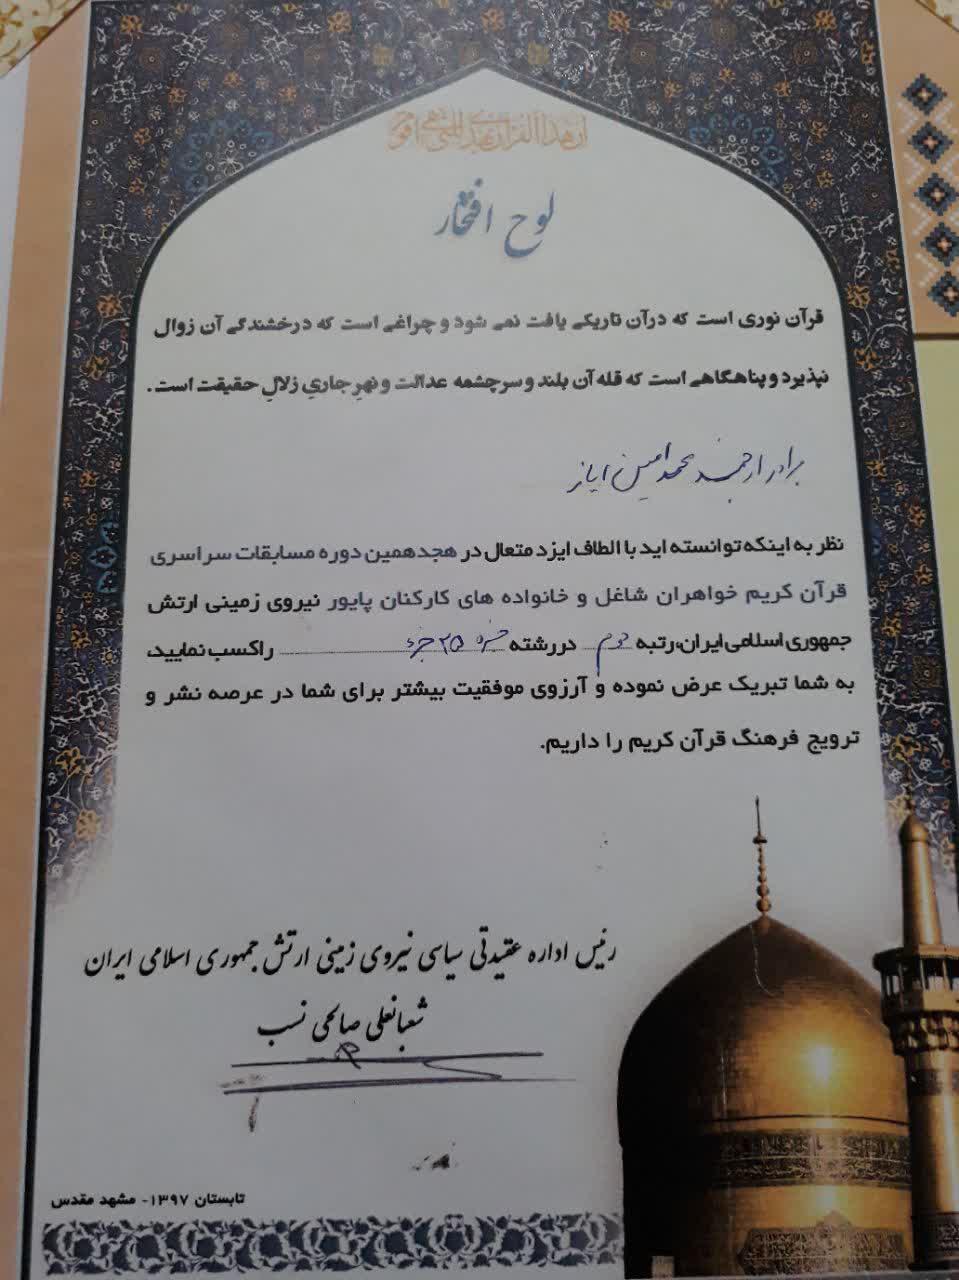 ان هذا القرآن یهدی للتی هی اقوم
لوح افتخار
قرآن نوری است که درآن تاریکی یافت نمی شود و چراغی است که درخشندگی آن زوال
نپذیرد و پناهگاهی است که قله آن بلند و سرچشمه عدالت و نهرِ جاریِ زلالِ حقیقت است.
برادر ارجمند محمد امین ایاز
نظر به اینکه توانسته اید با الطاف ایزد متعال در هجدهمین دوره مسابقات سراسری
قرآن کریم خواهران شاغل و خانواده های کارکنان پایور نیروی زمینی ارتش
جمهوری اسلامی ایران، رتبه دوم در رشته حفظ ۲۵ جزء را کسب نمایید،
به شما تبریک عرض نموده و آرزوی موفقیت بیشتر برای شما در عرصه نشر و
ترویج فرهنگ قرآن کریم را داریم.
رئیس اداره عقیدتی سیاسی نیروی زمینی ارتش جمهوری اسلامی ایران
شعبانعلی صالحی نسب
تابستان ۱۳۹۷- مشهد مقدس